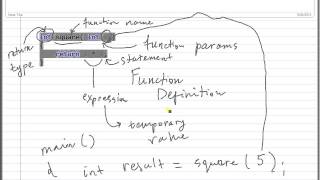 function name
int square( int
return
return
type
function params
statement
Function
Definition
expression
temporary
value
main()
int result = square(5);